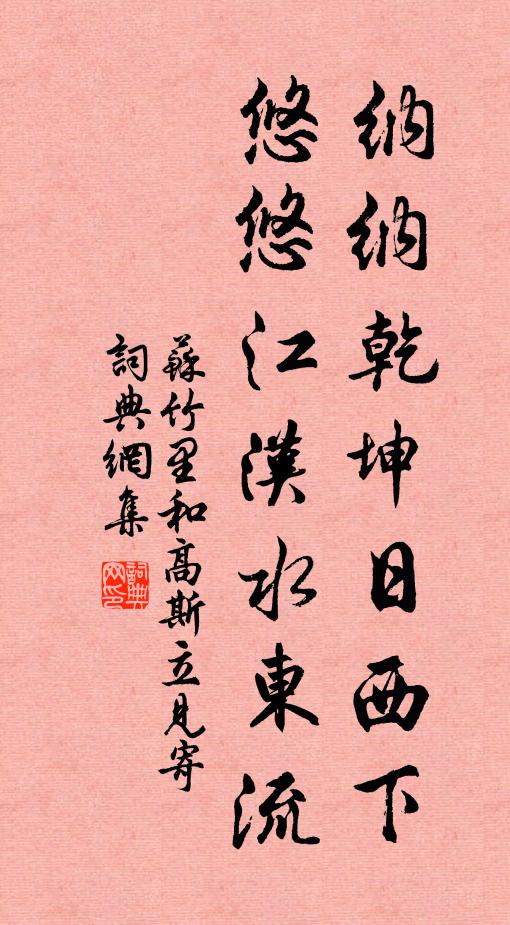 納納乾坤日西下
悠悠江漢水東流
蘇竹里和高斯立見寄
詞典網集
詞典网印